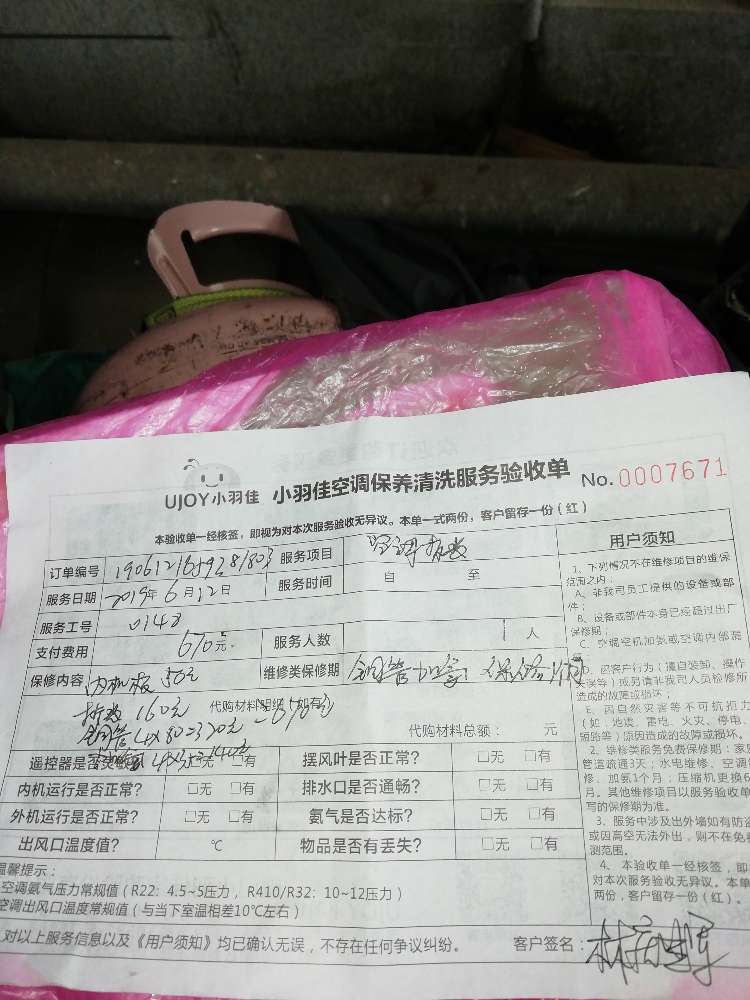 UJOY小羽佳 小羽佳空调保养清洗服务验收单 No. 0007671
本验收单一经核签，即视为对本次服务验收无异议。本单一式两份，客户留存一份（红）
订单编号 服务项目 空调拆装
服务日期 2019年6月12日 服务时间 自 至
服务工号 0148
支付费用 670元 服务人数 1 人
保修内容 内机板50元 维修类保修期 铜管加氟
拆装160元 代购材料明细（如有）
代购材料总额： 元
遥控器是否 □无 □有 摆风叶是否正常？ □无 □有
内机运行是否正常？ □无 □有 排水口是否通畅？ □无 □有
外机运行是否正常？ □无 □有 氨气是否达标？ □无 □有
出风口温度值？ ℃ 物品是否有丢失？ □无 □有
温馨提示：
空调氨气压力常规值（R22：4.5~5压力，R410/R32：10~12压力）
空调出风口温度常规值（与当下室温相差10℃左右）
对以上服务信息以及《用户须知》均已确认无误，不存在任何争议纠纷。 客户签名：
用户须知
1、下列情况不在维修项目的维保
范围之内：
A、非我司员工提供的设备或部
件；
B、设备或部件本身已经超过出厂
保修期；
C、空调空机加装或空调内部
D、因客户行为（擅自装卸、操作
失误等）或另请非我司人员检修所
造成的故障或损坏；
E、因自然灾害等不可抗拒力
（如，地震、雷电、火灾、停电、
短路等）原因造成的故障或损坏。
2、维修类服务免费保修期：家庭
管道疏通3天；水电维修、空调
修、加氨1个月；压缩机更换6
月。其他维修项目以服务验收单
写的保修期为准。
3、服务中涉及出外墙如有防盗
或因高空无法外出，则不在免
测范围。
4、本验收单一经核签，即
对本次服务验收无异议。本单
两份，客户留存一份（红）。